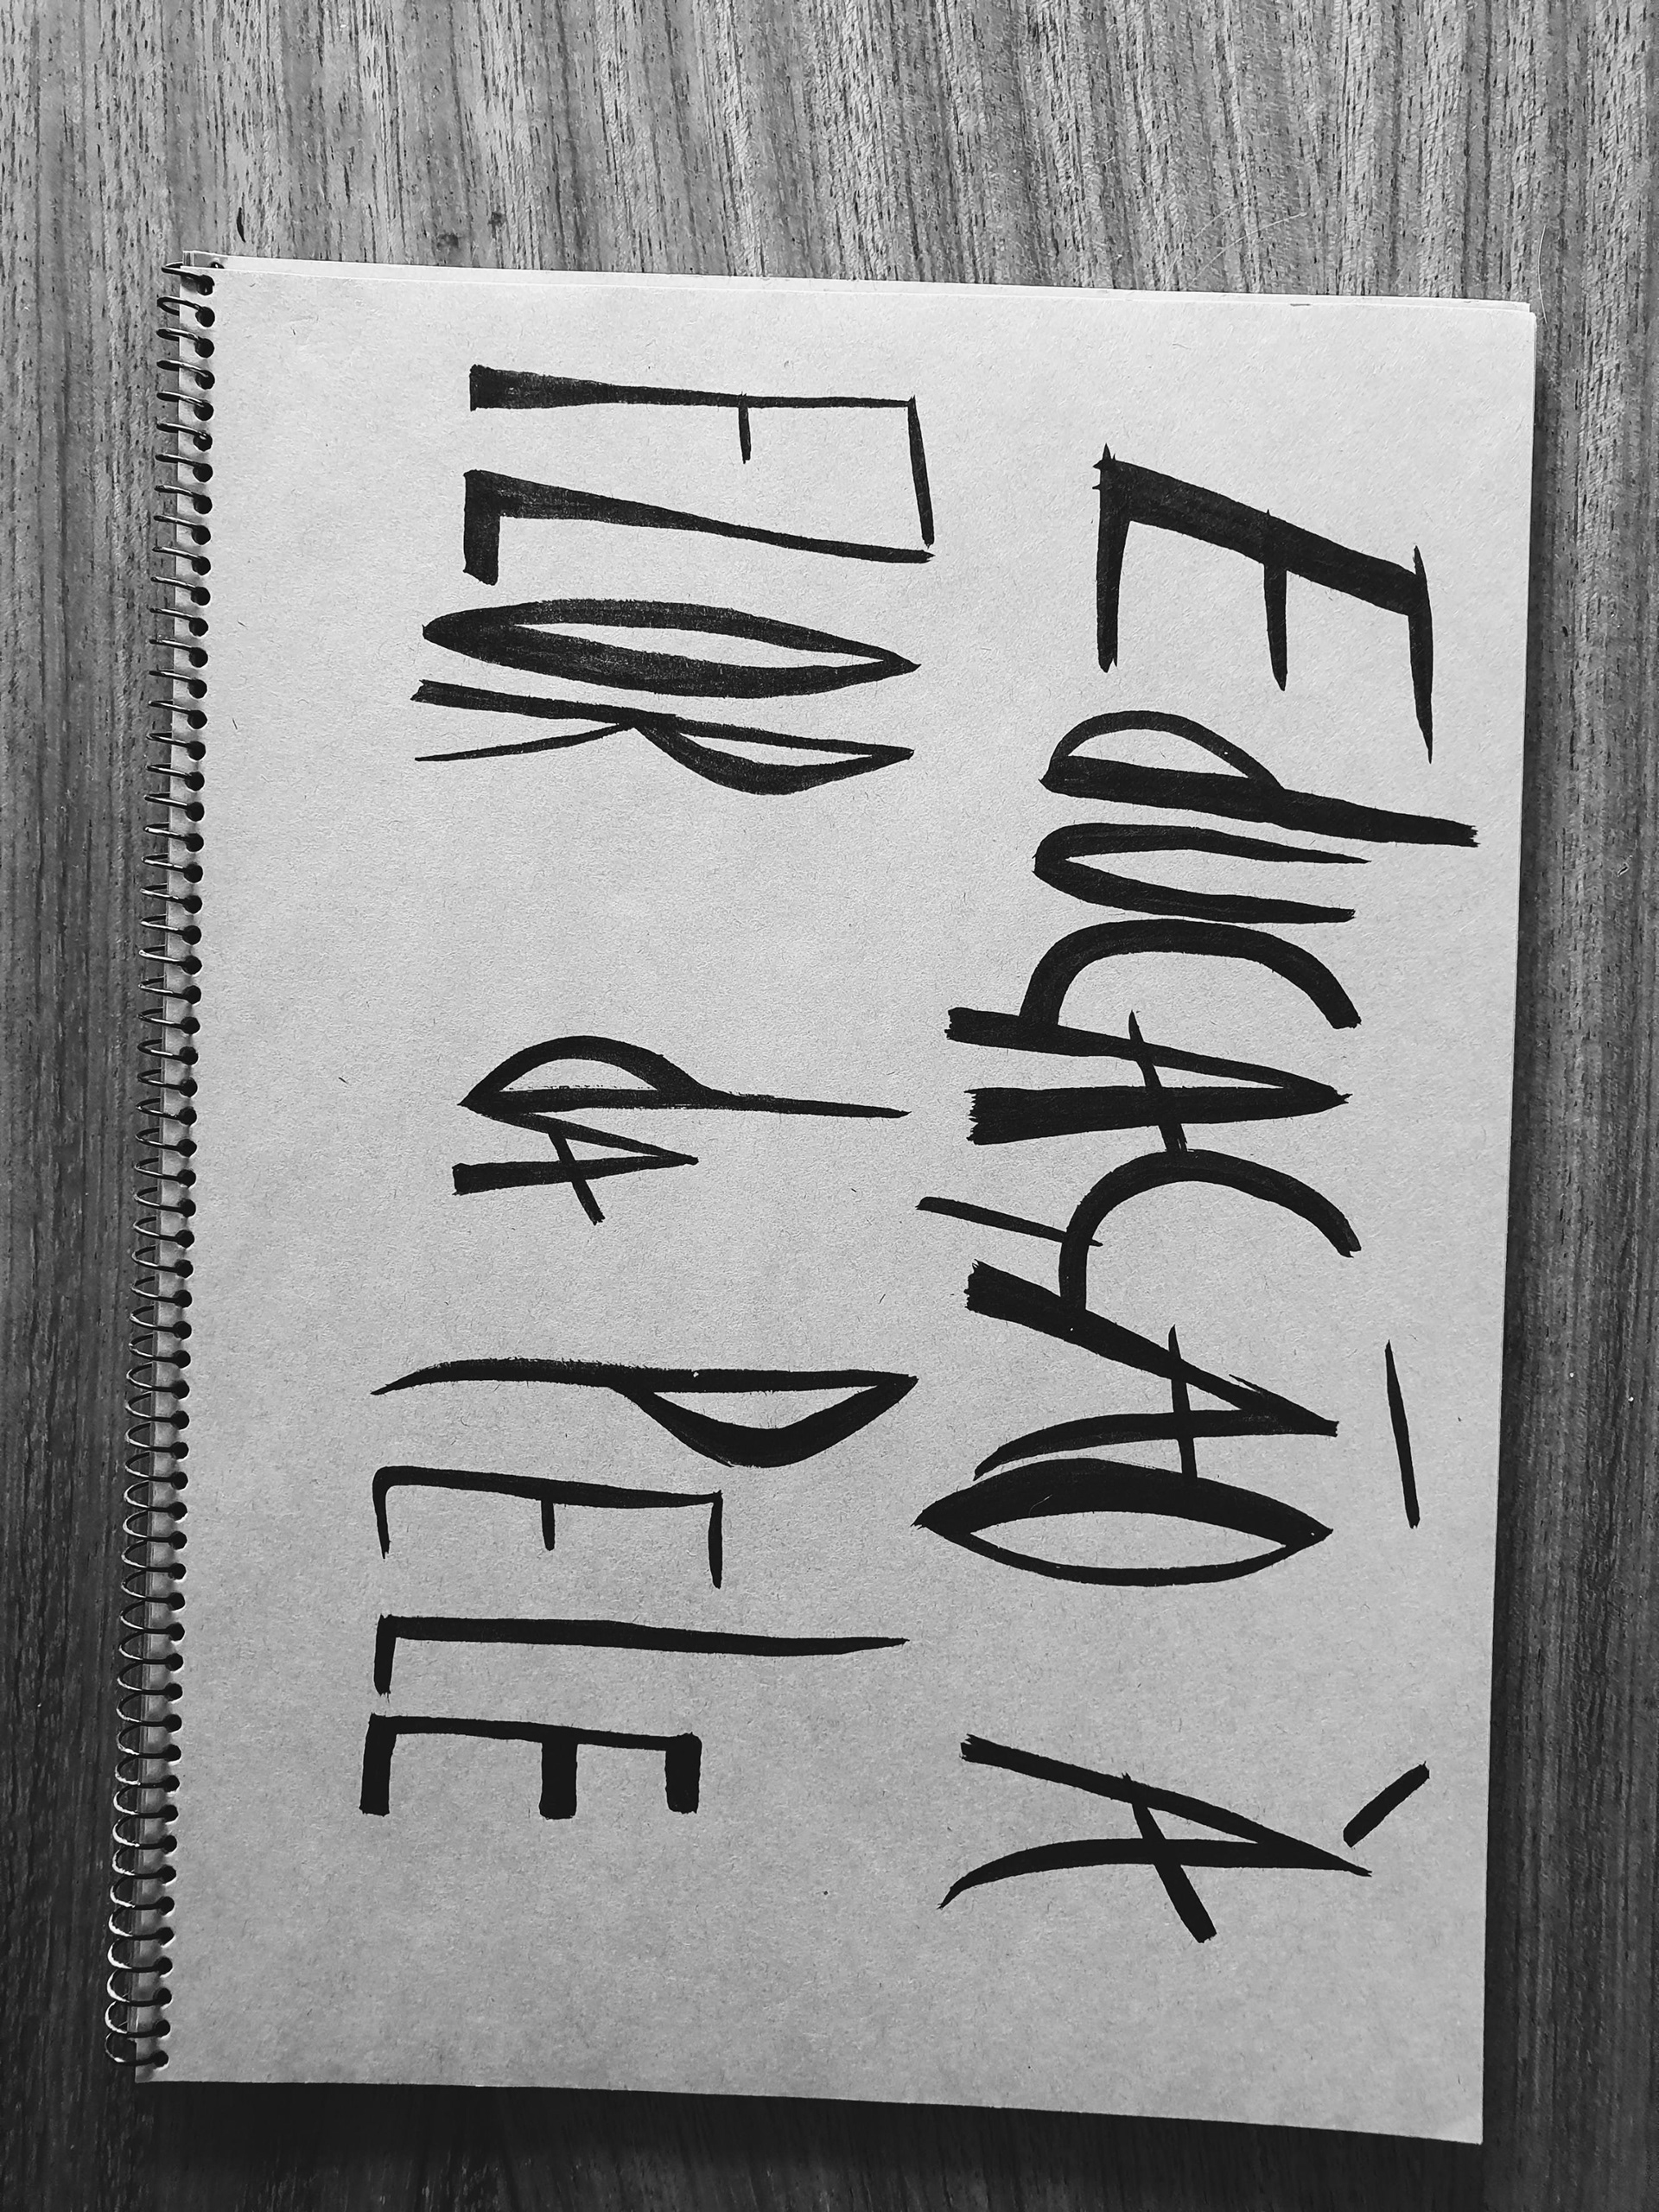 EdUCAÇÃO À
FLOR dA PELE